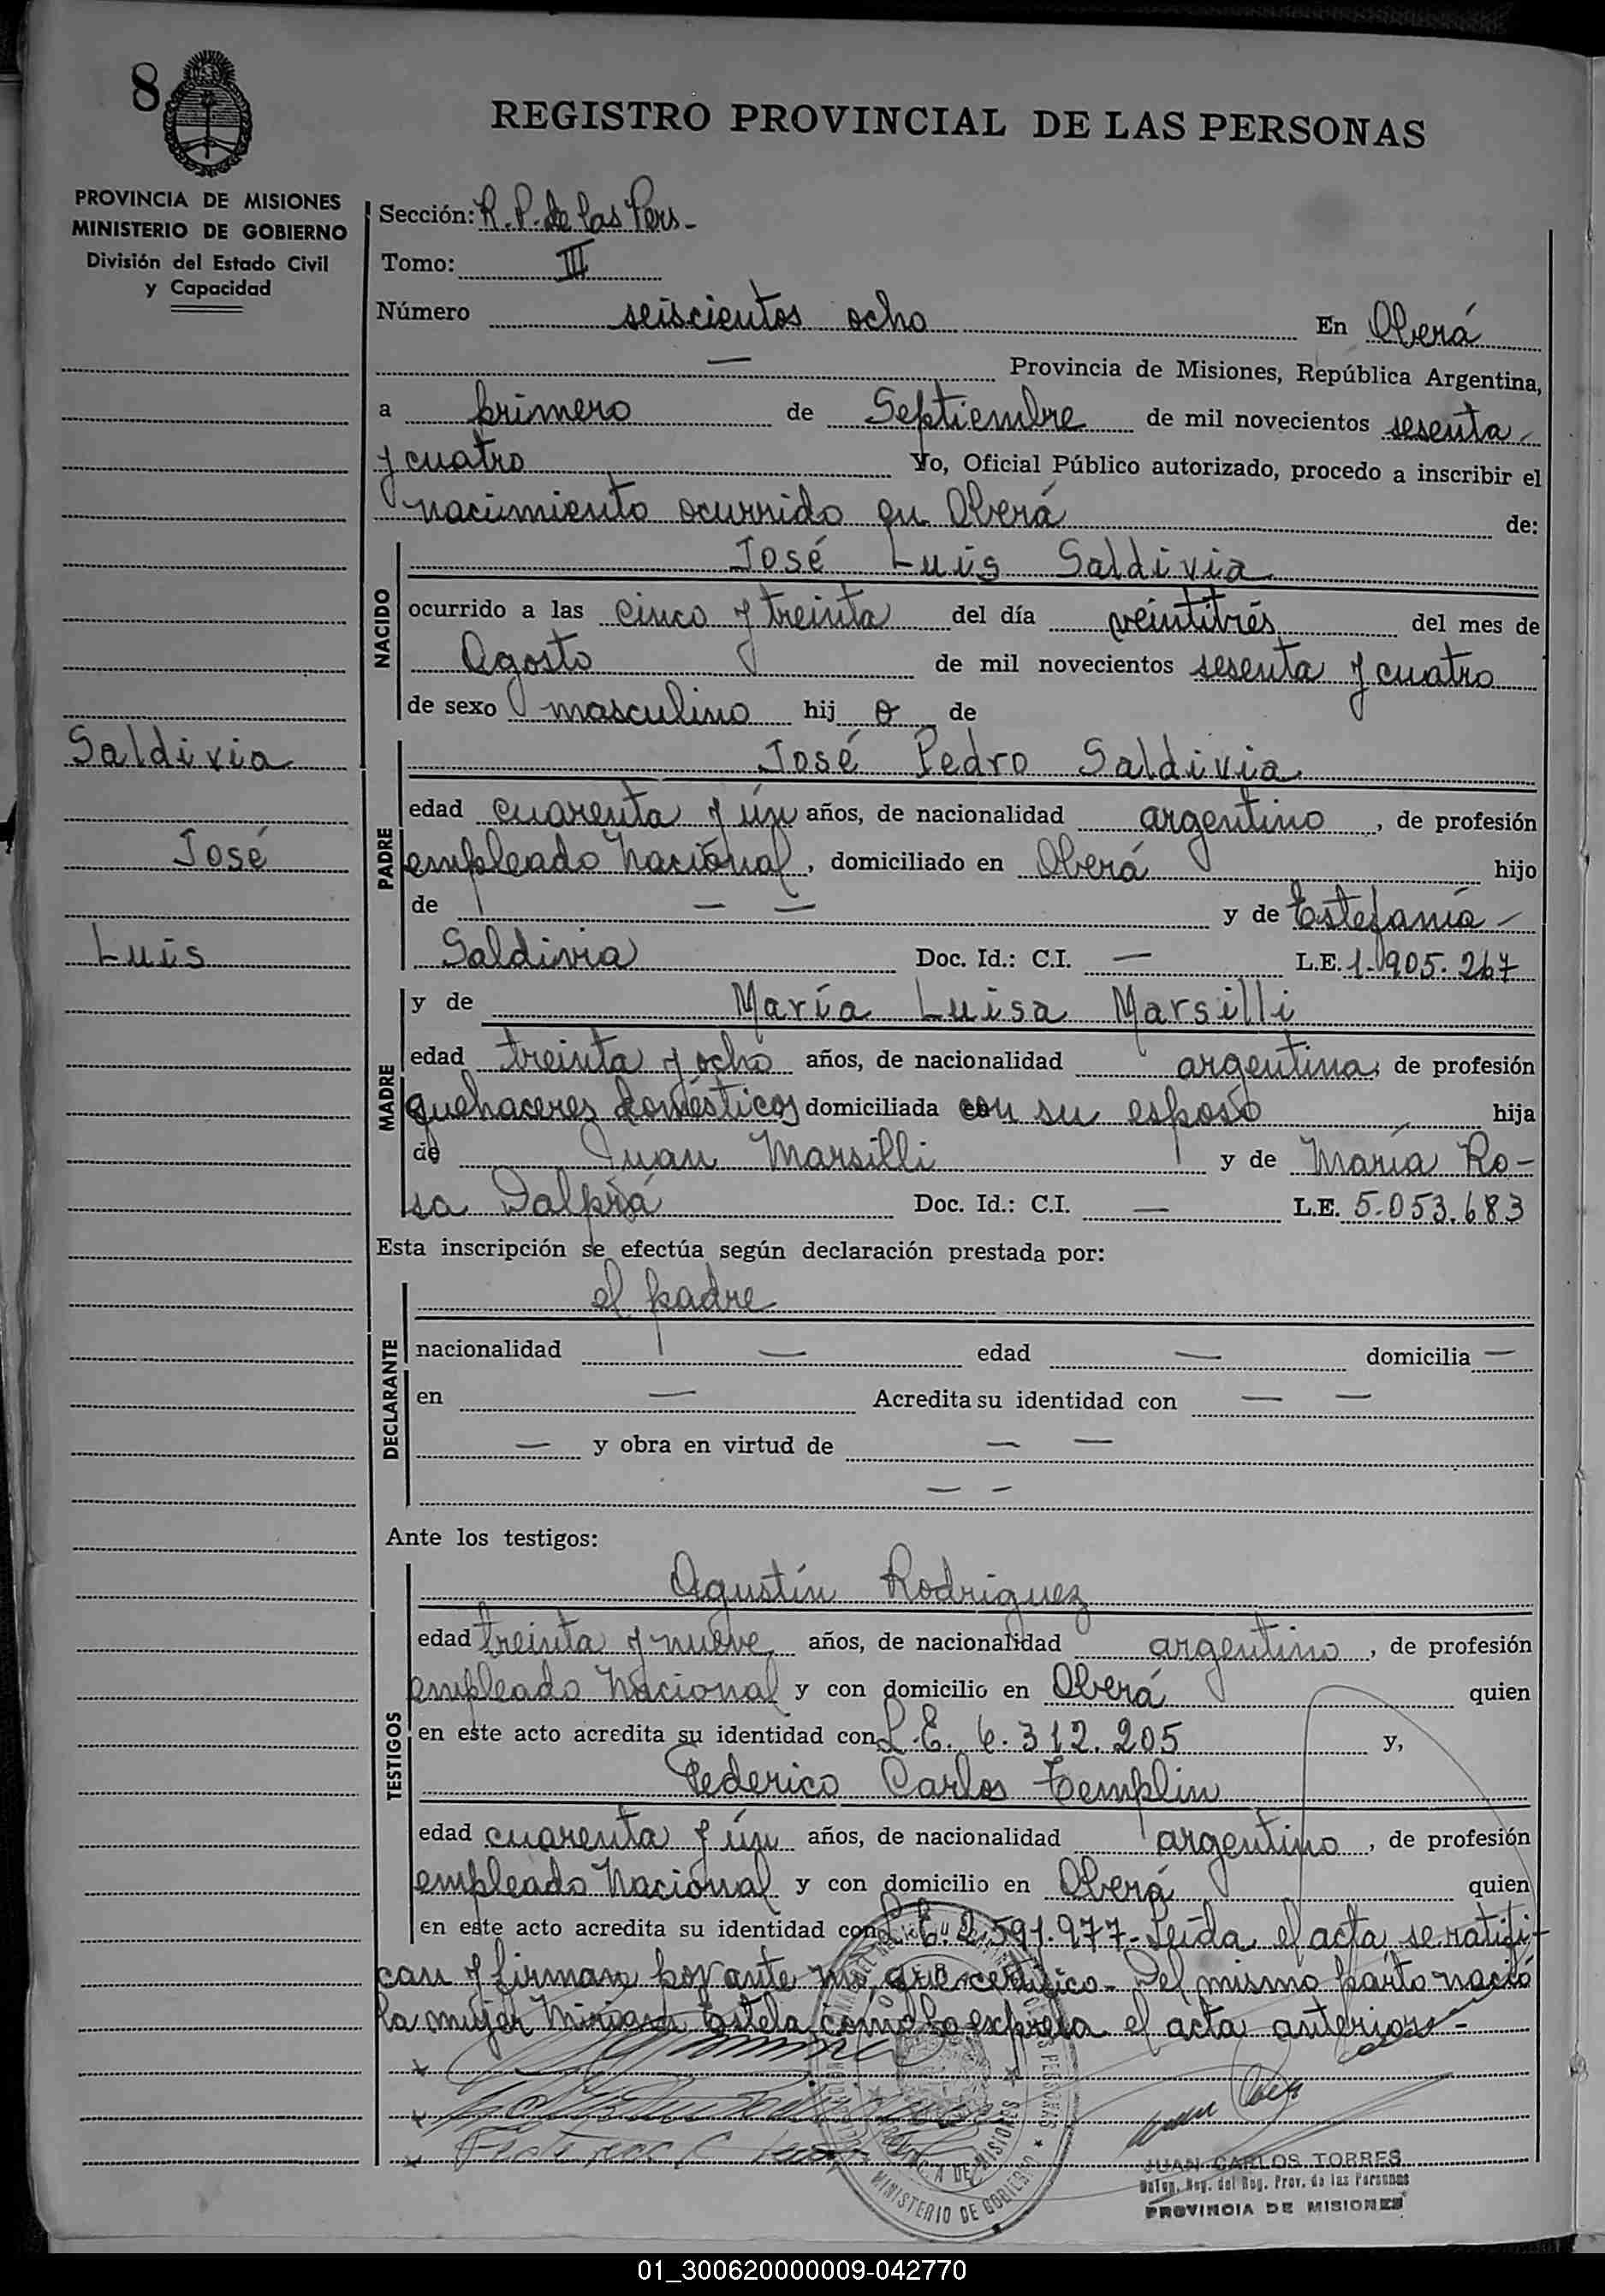 8
REGISTRO PROVINCIAL DE LAS PERSONAS
PROVINCIA DE MISIONES
MINISTERIO DE GOBIERNO
División del Estado Civil
y Capacidad
Sección: R. P. de las Pers-
Tomo: III
Número seiscientos ocho En Oberá
— Provincia de Misiones, República Argentina,
a primero de Septiembre de mil novecientos sesenta
y cuatro Yo, Oficial Público autorizado, procedo a inscribir el
nacimiento ocurrido en Oberá de:
NACIDO
José Luis Saldivia
ocurrido a las cinco y treinta del día veintitrés del mes de
Agosto de mil novecientos sesenta y cuatro
de sexo masculino hij o de
Saldivia
José
Luis
PADRE
José Pedro Saldivia
edad cuarenta y ún años, de nacionalidad argentino, de profesión
empleado Nacional, domiciliado en Oberá hijo
de — — y de Estefanía
Saldivia Doc. Id.: C.I. — L.E. 1.905.267
MADRE
y de María Luisa Marsilli
edad treinta y ocho años, de nacionalidad argentina, de profesión
quehaceres domésticos domiciliada con su esposo hija
de Juan Marsilli y de María Ro-
sa Dalprá Doc. Id.: C.I. — L.E. 5.053.683
Esta inscripción se efectúa según declaración prestada por:
DECLARANTE
el padre
nacionalidad — edad — domicilia —
en — Acredita su identidad con — —
— y obra en virtud de — —
— —
Ante los testigos:
TESTIGOS
Agustín Rodriguez
edad treinta y nueve años, de nacionalidad argentino, de profesión
empleado Nacional y con domicilio en Oberá quien
en este acto acredita su identidad con L.E. 6.312.205 y,
Federico Carlos Templin
edad cuarenta y ún años, de nacionalidad argentino, de profesión
empleado Nacional y con domicilio en Oberá quien
en este acto acredita su identidad con L.E. 2.591.977- Leída el acta se ratifi-
can y firman por ante mí que certifico- Del mismo parto nació
la mujer Miriam Estela como lo expresa el acta anterior-
MINISTERIO DE GOBIERNO
PROVINCIA DE MISIONES
JUAN CARLOS TORRES
Reg. del Reg. Prov. de las Personas
PROVINCIA DE MISIONES
01_300620000009-042770